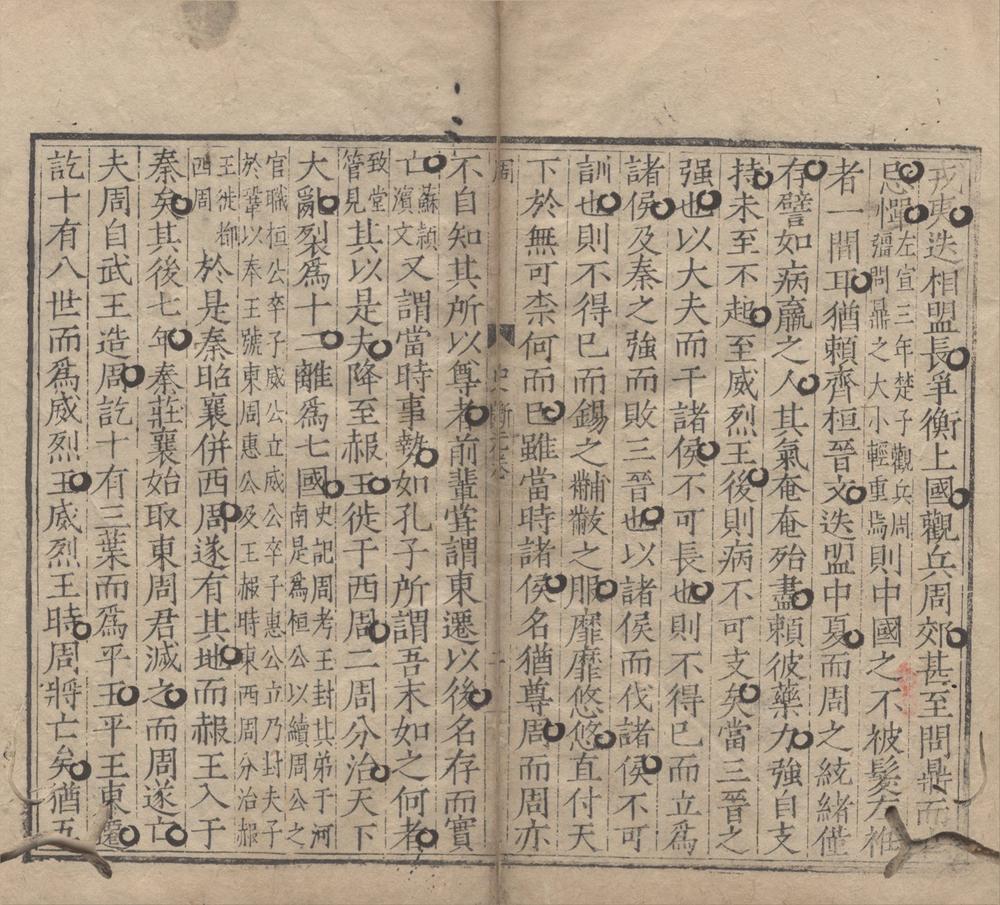 戎夷迭相盟長爭衡上國觀兵周郊甚至問鼎而
忌憚左宣三年楚子觀兵周
疆問鼎之大小輕重焉則中國之不被髮左袵
者一間耳猶賴齊桓晉文迭盟中夏而周之統緒僅
存譬如病羸之人其氣奄奄殆盡賴彼藥力強自支
持未至不起至威烈王後則病不可支矣當三晉之
强也以大夫而干諸侯不可長也則不得已而立爲
諸侯及秦之強而敗三晉也以諸侯而伐諸侯不可
訓也則不得已而錫之黼黻之服靡靡悠悠直付天
下於無可柰何而已雖當時諸侯名猶尊周而周亦
周
史斷
二
不自知其所以尊者前輩嘗謂東遷以後名存而實
亡蘇穎
濱文又謂當時事埶如孔子所謂吾末如之何者
致堂
管見其以是夫降至赧王徙于西周二周分治天下
大亂裂爲十二離爲七國史記周考王封其弟于河
南是爲桓公以續周公之
官職桓公卒子威公立威公卒子惠公立乃封夫子
於鞏以奉王號東周惠公及王赧時東西周分治赧
王徙都
西周於是秦昭襄併西周遂有其地而赧王入于
秦矣其後七年秦莊襄始取東周君滅之而周遂亡
夫周自武王造周訖十有三葉而爲平王平王東遷
訖十有八世而爲威烈王威烈王時周將亡矣猶五